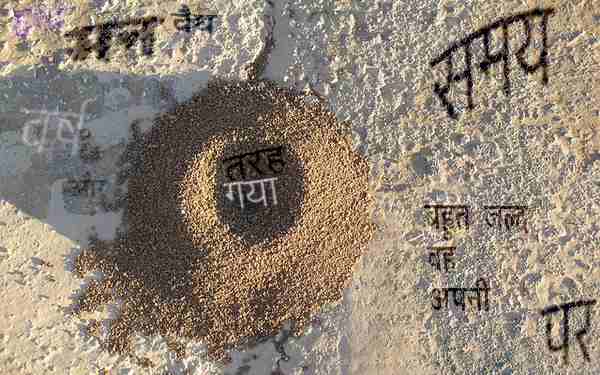 वैध
समय
वर्ष
और
तरह
गया
बहुत जल्द
वह
अपनी
पर